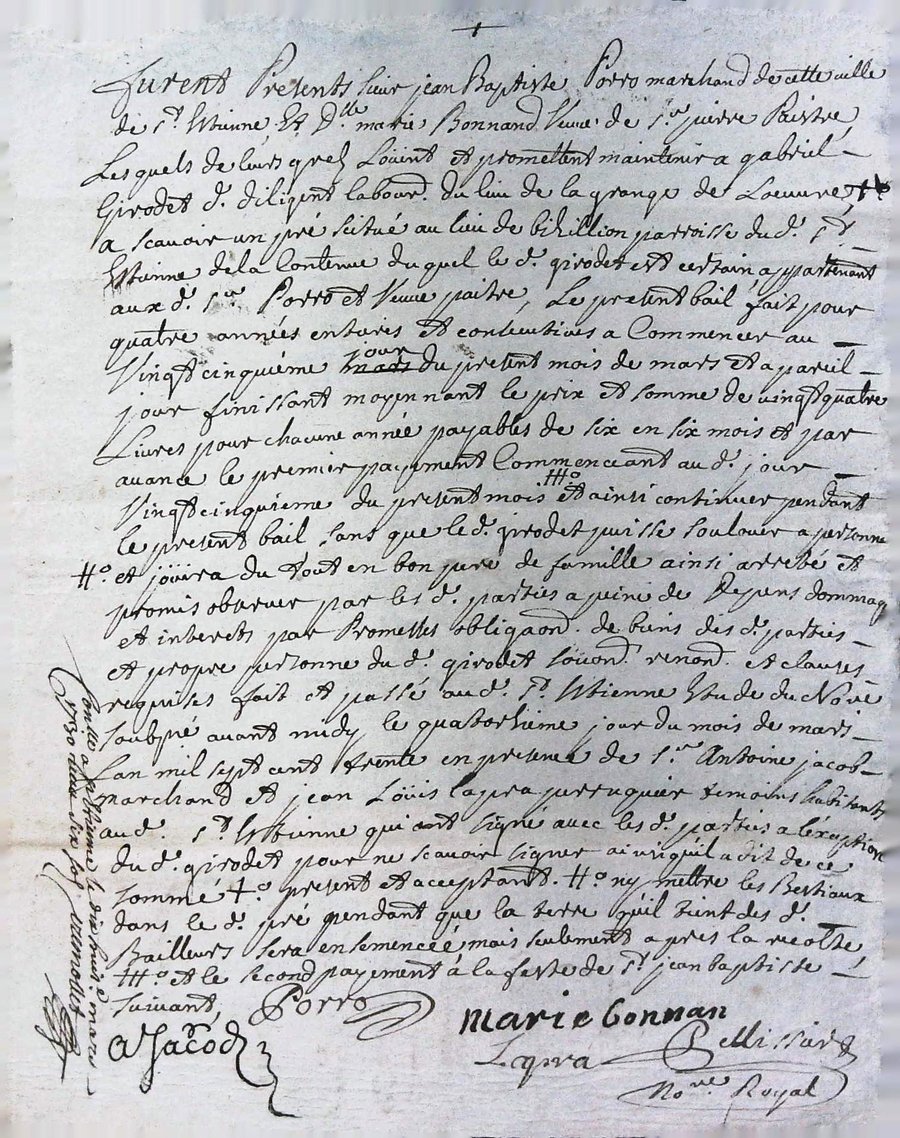 +
furent Presents sieur jean Baptiste Porro marchand de cette ville
de St. Estienne Et Dlle marie Bonnand Veuve de Sr. pierre Paistre
Lesquels de leurs grez Loüent et promettent maintenir a gabriel –
Girodet d. diligent labourd. du lieu de la grange de Loeuvre +o
a scavoir un pré scitué au lieu de bizillion parroisse du d. St. –
Estienne de la Contenue du quel le d. girodet est certain appartenant
aux d. Srs. Porro et Veuve paitre, Le present bail fait pour
quatre années entieres et consecutives a Commencer au –
Vingt cinquiéme mars jour du present mois de mars et a pareil –
jour finissant moyennant le prix et somme de vingt quatre
Livres pour chacune année payables de six en six mois et par
avance le premier payement Commenceant au d. jour –
Vingt cinquieme du present mois ##o et ainsi continuer pendant
le present bail sans que le d. girodet puisse soulouer a personne
#o et joüira du tout en bon pere de famille ainsi arresté et
promis observer par les d. parties a peine de Depens dommag
et interets par Promesses obligaond. de biens des d. parties –
et propre personne du d. girodet soüond. renond. et clauses
requises fait et passé au d. St. Estienne Etude du Nore
soubpné avant midy le quatorzieme jour du mois de mars –
Lan mil sept cent trente en presence de Sr. Antoine jacob –
marchand et jean Loüis lapra perruquier temoins habitants
au d. St. Estienne qui ont signé avec les d. parties a l'exception
du d. girodet pour ne scavoir signer ainsi qu'il a dit de ce
sommé +o present et acceptant. #o ny mettre les Bestiaux
dans le d. pré pendant que la terre qu'il tient des d.
Bailleurs sera ensemencée mais seulement apres la recolte
##o et le second payement à la feste de St. jean baptiste –
suivant, Porro
marie bonnan
AJacob
Lapra Pellissier
Nore. Royal
Conlle a St Etienne le dix huit e mars –
1730 six sols